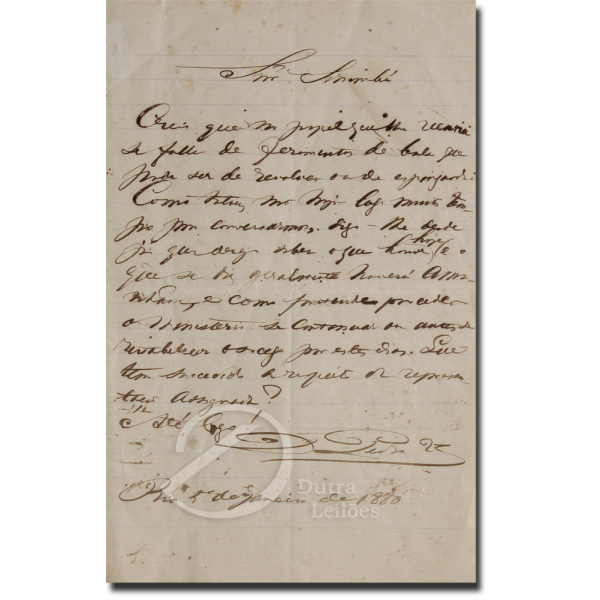 Snr. Sinimbú
Creio que no papel que lhe
se falla de ferimentos de bala que
pode ser de revolver ou de espingarda.
Como talvez não haja logo muito tem-
po pra conversarmos, digo-lhe desde
já que desejo saber o que houve hoje e o
que se diz geralmente haverá
e como pretende proceder
o Ministerio se continuar ou antes de
restabelecer o socego por estes dias. Que
tem succedido a respeito da represen-
tação assignada?
Até logo!
D. Pedro 2º
Rio 5 de Janeiro de 1880
Dutra
Leilões